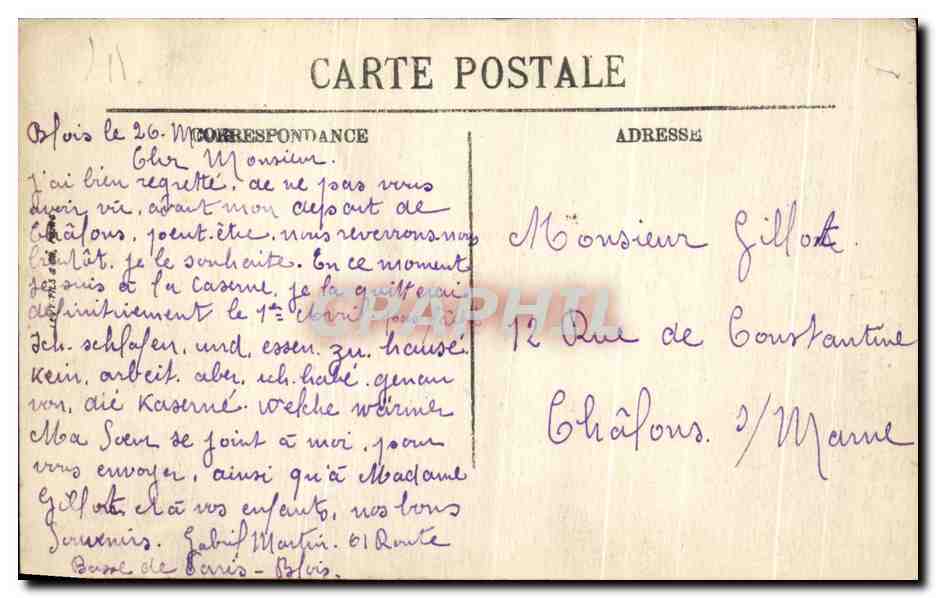 CARTE POSTALE
CORRESPONDANCE
ADRESSE
Blois le 26.
Cher Monsieur.
J'ai bien regretté, de ne pas vous
avoir vu, avant mon depart de
Châlons, peut-être, nous reverrons nous
bientôt. je le souhaite. En ce moment
je suis à la Caserne, je la quitterai
definitivement le 1er Avril
Ich schlafen, und, essen. zu hausé.
Kein, arbeit. aber, ich habé. genau
von, die Kaserné. Welche
Ma Soeur se joint à moi, pour
vous envoyer, ainsi qu'à Madame
Gillot et à vos enfants, nos bons
Souvenirs. Gabriel Martin. 61 Route
Basse de Paris - Blois.
Monsieur Gillot.
12 Rue de Constantine
Châlons. s/Marne
CPAPHIL